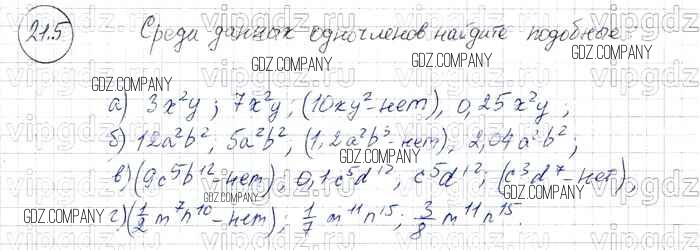 21.5 Среди данных одночленов найдите подобные
GDZ.COMPANY GDZ.COMPANY
GDZ.COMPANY GDZ.COMPANY
а) 3x²y; 7x²y; (10xy²-нет), 0,25x²y;
б) 12a²b², 5a²b², (1,2a²b³-нет), 2,04a²b²;
GDZ.COMPANY GDZ.COMPANY
в) (9c⁵b¹²-нет), 0,1c⁵d¹², c⁵d¹²; (c³d⁷-нет),
г) (1/2 m⁷n¹⁰-нет); 1/7 m¹¹n¹⁵; 3/8 m¹¹n¹⁵.
GDZ.COMPANY GDZ.COMPANY GDZ.COMPANY
vipgdz